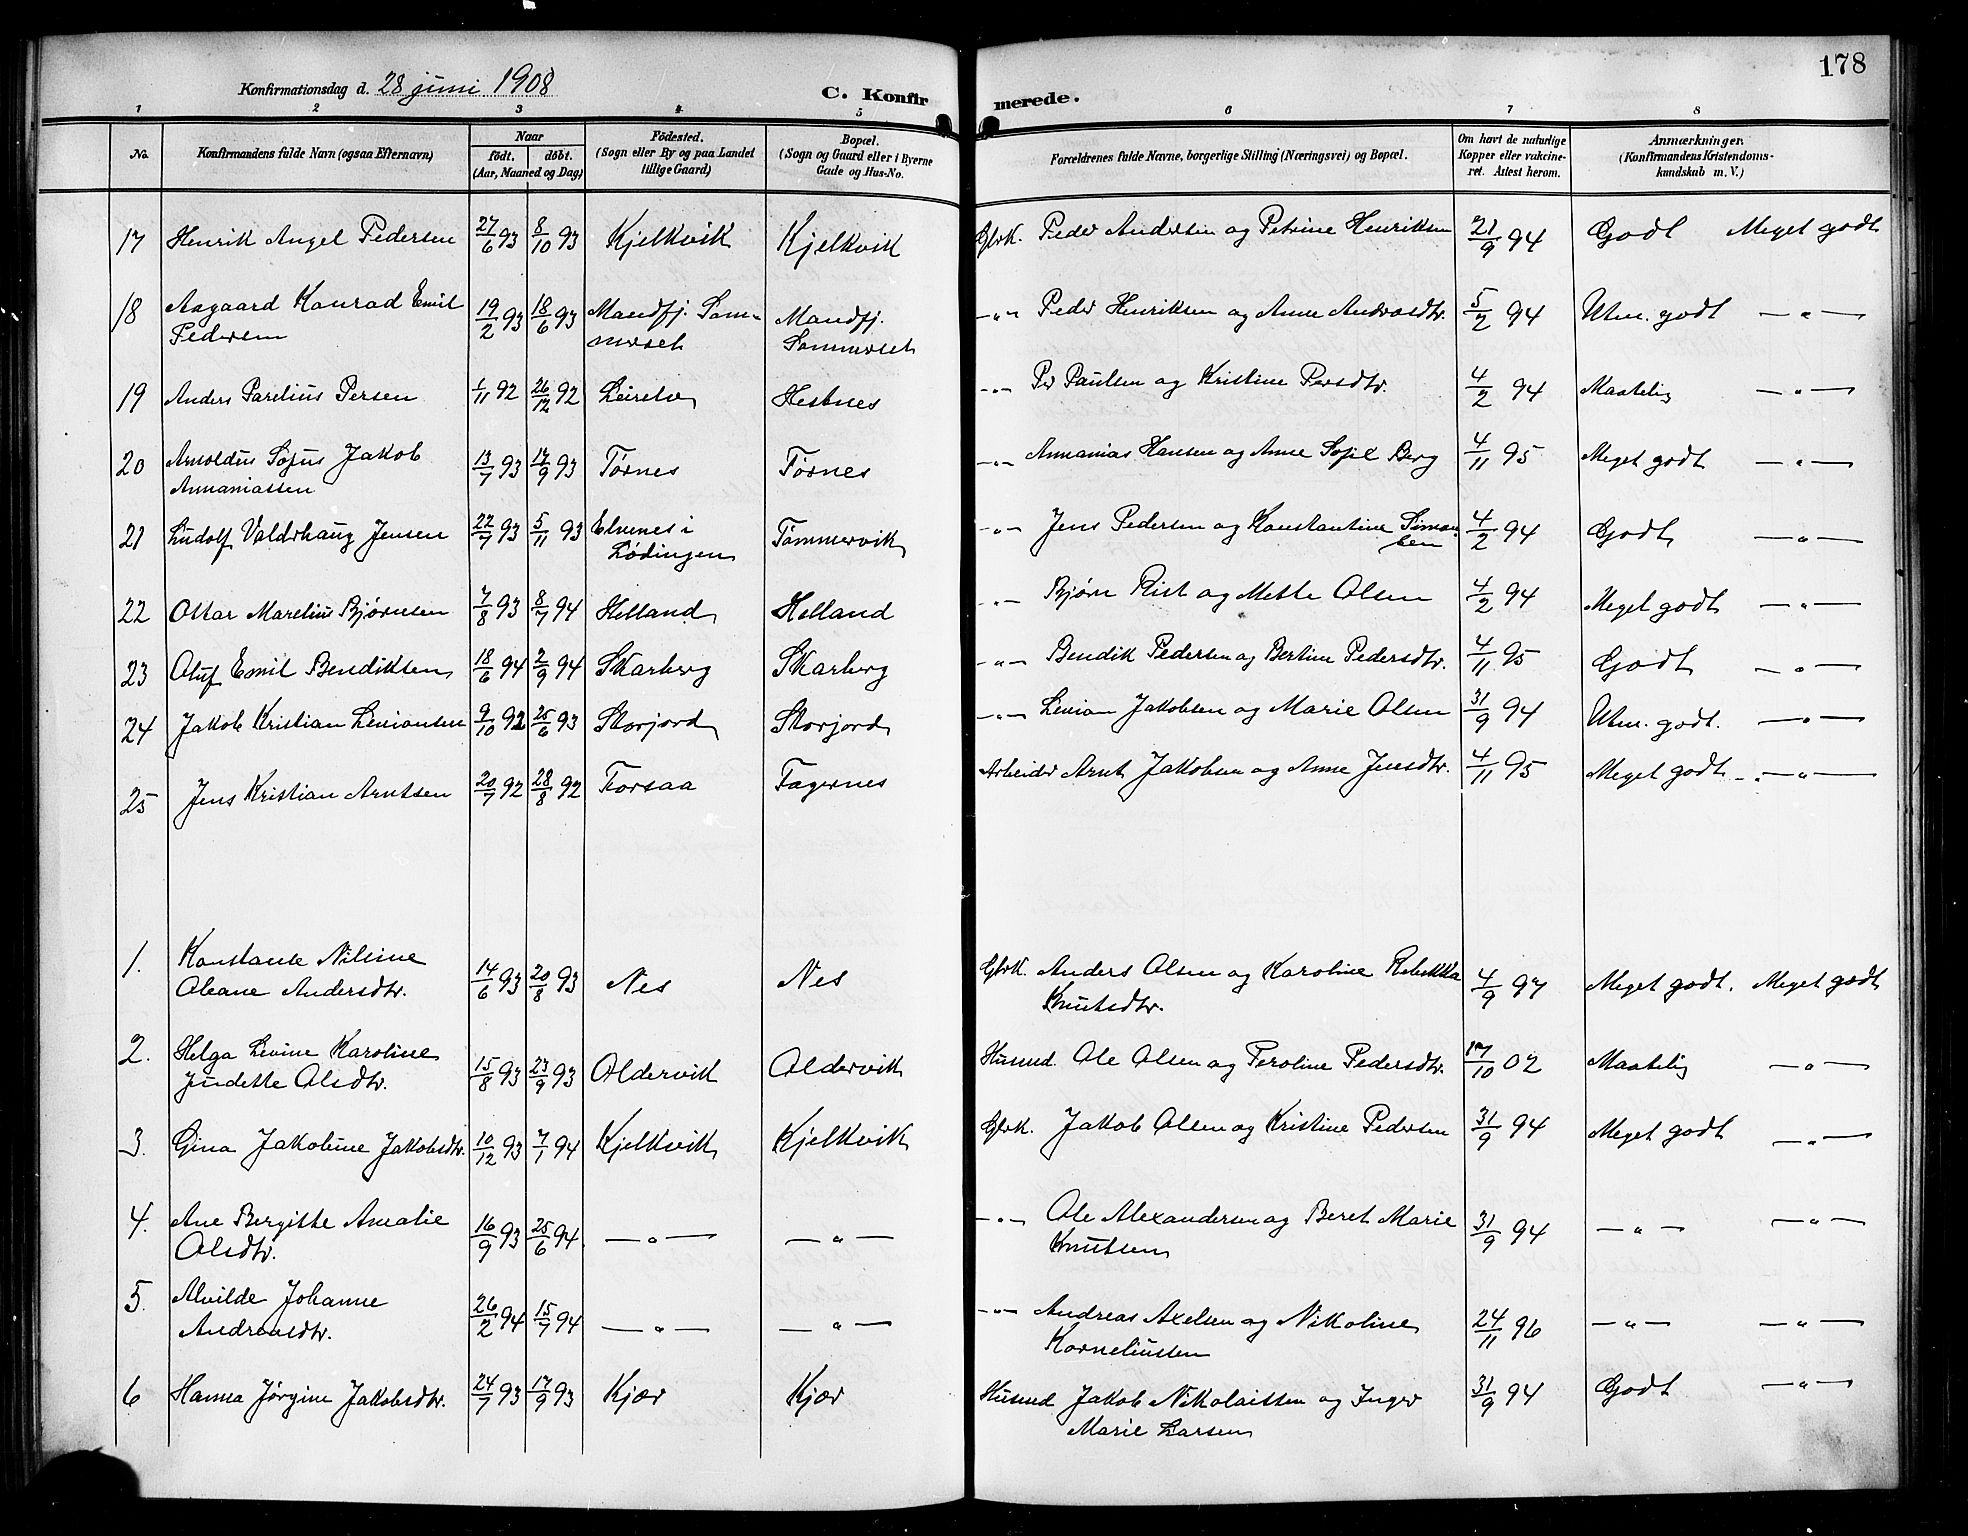 178
Konfirmationsdag d. 28 juni 1908
C. Konfirmerede.
1 2 3 4 5 6 7 8
No. Konfirmandens fulde Navn (ogsaa Efternavn) Naar født. døbt. (Aar, Maaned og Dag) Fødested. (Sogn eller By og paa Landet tillige Gaard) Bopæl. (Sogn og Gaard eller i Byerne Gade og Hus-No. Forældrenes fulde Navne, borgerlige Stilling (Næringsvei) og Bopæl. Om havt de naturlige Kopper eller vakcineret. Attest herom. Anmærkninger. (Konfirmandens Kristendomskundskab m. V.)
17 Henrik Angel Pedersen 27/6 93 8/10 93 Kjelkvik Kjelkvik Gbrk. Peder Andersen og Petrine Henriksen 21/9 94 Godt Meget godt
18 Asgaard Konrad Emil 19/2 93 18/6 93 Mandfj. Som- Mandfj. -"- Peder Henriksen og Anne Andreasdtr. 5/2 94 Utm. godt -"-
Pedersen merset Sommerset
19 Anders Parelius Persen 1/11 92 26/12 92 Leirelv Hestnes -"- Per Paulsen og Kristine Persdtr. 4/2 94 Maatelig -"-
20 Arnoldus Sofus Jakob 13/7 93 17/9 93 Tørnes Tørnes -"- Annanias Hansen og Anne Sofie Berg 4/11 95 Meget godt -"-
Annaniassen
21 Ludolf Valdrhaug Jensen 22/7 93 5/11 93 Elvenes i Tømmervik -"- Jens Pedersen og Konstantine Simon- 4/2 94 Godt -"-
Lødingen sen
22 Ottar Marelius Bjørnsen 7/8 93 8/7 94 Helland Helland -"- Bjørn Rist og Mette Olsen 4/2 94 Meget godt -"-
23 Oluf Emil Bendiksen 18/6 94 2/9 94 Skarberg Skarberg -"- Bendik Pedersen og Bertine Pedersdtr. 4/11 95 Godt -"-
24 Jakob Kristian Leviansen 9/10 92 25/6 93 Storjord Storjord -"- Levian Jakobsen og Marie Olsen 31/9 94 Utm. godt. -"-
25 Jens Kristian Arntsen 20/7 92 28/8 92 Forsaa Fagernes Arbeider Arnt Jakobsen og Anne Jensdtr. 4/11 95 Meget godt -"-
1. Konstanse Nilsine 14/6 93 20/8 93 Nes Nes Gbrk. Anders Olsen og Karoline Rebekka 4/9 97 Meget godt. Meget godt
Oleane Andersdtr. Knutsdtr.
2. Helga Levine Karoline 15/8 93 23/9 93 Oldervik Oldervik Husmd. Ole Olsen og Peroline Pedersdtr. 17/10 02 Maatelig -"-
Judette Olsdtr.
3. Gina Jakobine Jakobsdtr. 10/12 93 7/1 94 Kjelkvik Kjelkvik Gbrk. Jakob Olsen og Kristine Pedersen 31/9 94 Meget godt -"-
4. Ane Bergitte Amalie 16/9 93 25/6 94 -"- -"- -"- Ole Alexandersen og Beret Marie 31/9 94 -"- -"-
Olsdtr. Knutsen
5. Alvilde Johanne 26/2 94 15/7 94 -"- -"- -"- Andreas Axelsen og Nikoline 24/11 96 -"- -"-
Andreasdtr. Korneliussen
6 Hanna Jørgine Jakobsdtr. 24/7 93 17/9 93 Kjær Kjær Husmd Jakob Nikolaissen og Inger 31/9 94 Godt -"-
Marie Larsen